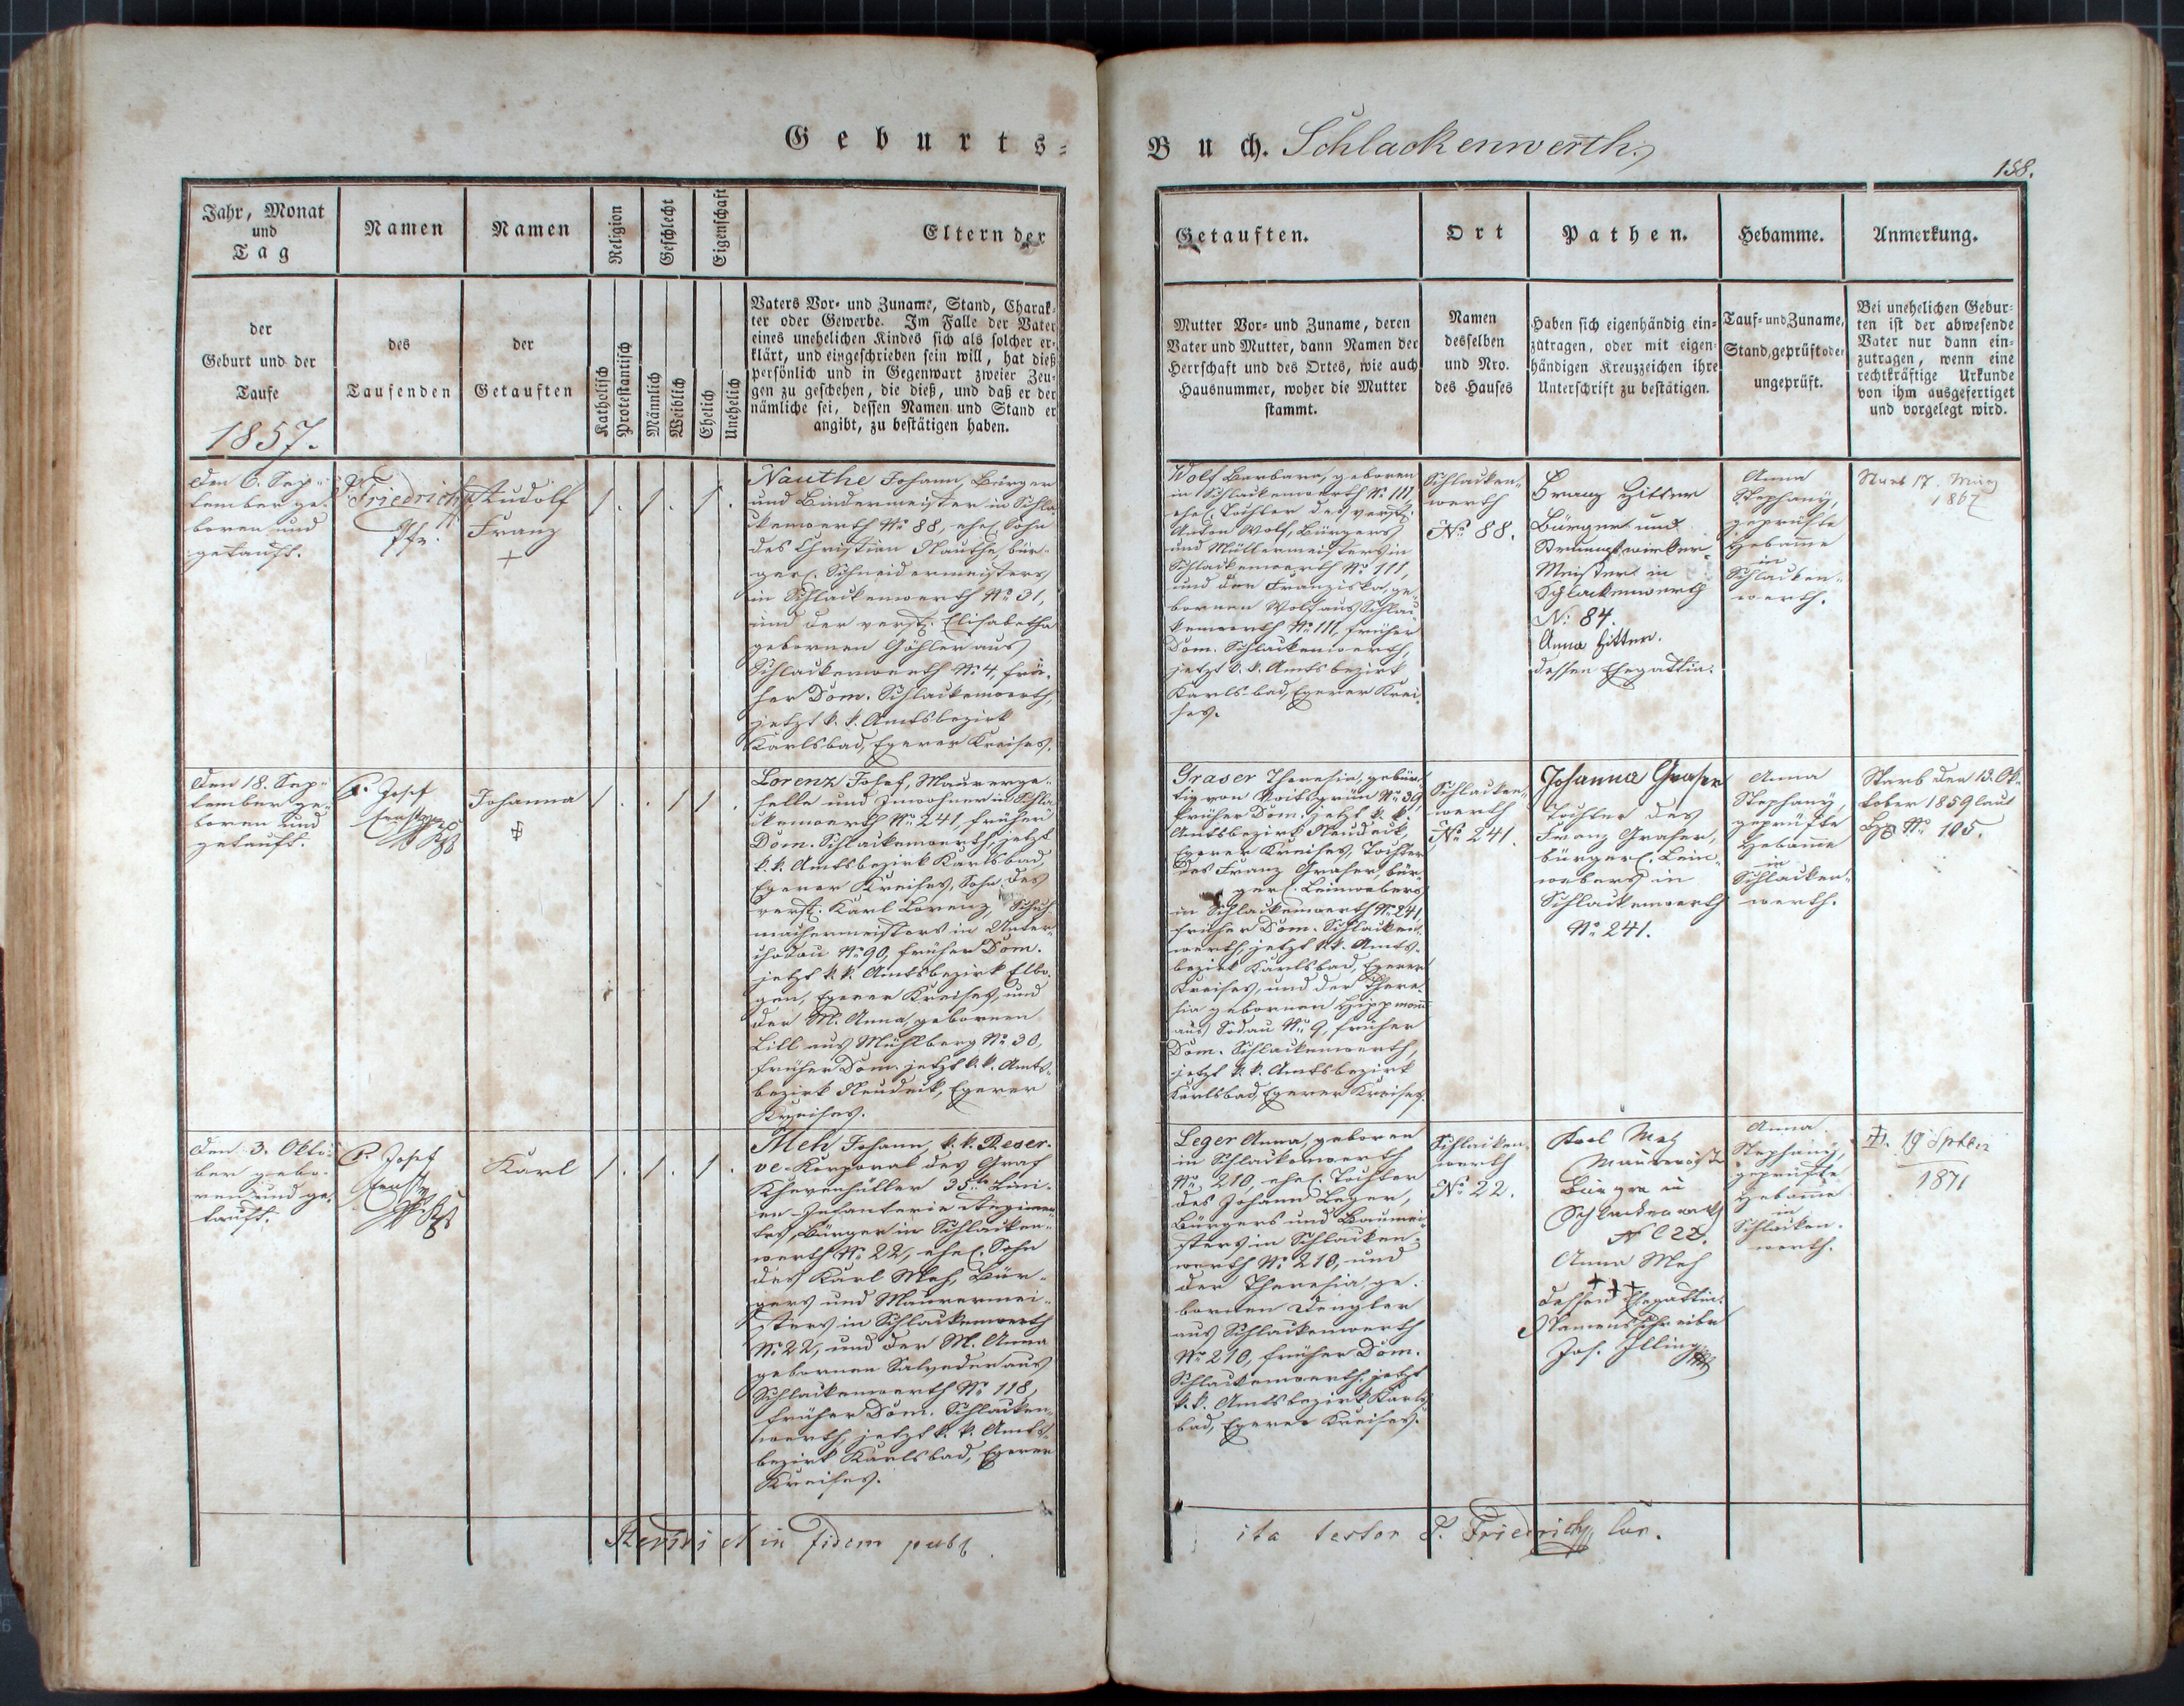 Geburts=
Buch. Schlackenwerth.
158.
Jahr, Monat
und
Tag
der
Geburt und der
Taufe
1857.
Namen
des
Taufenden
Namen
der
Getauften
Religion
Katholisch
Protestantisch
Geschlecht
Männlich
Weiblich
Eigenschaft
Ehelich
Unehelich
Eltern der
Vaters Vor= und Zuname, Stand, Charak=
ter oder Gewerbe. Im Falle der Vater
eines unehelichen Kindes sich als solcher er=
klärt, und eingeschrieben sein will, hat dieß
persönlich und in Gegenwart zweier Zeu=
gen zu geschehen, die dieß, und daß er der
nämliche sei, dessen Namen und Stand er
angibt, zu bestätigen haben.
Getauften.
Mutter Vor= und Zuname, deren
Vater und Mutter, dann Namen der
Herrschaft und des Ortes, wie auch
Hausnummer, woher die Mutter
stammt.
Ort
Namen
desselben
und Nro.
des Hauses
Pathen.
Haben sich eigenhändig ein=
zutragen, oder mit eigen=
händigen Kreuzzeichen ihre
Unterschrift zu bestätigen.
Hebamme.
Tauf= und Zuname,
Stand, geprüft oder
ungeprüft.
Anmerkung.
Bei unehelichen Gebur=
ten ist der abwesende
Vater nur dann ein=
zutragen, wenn eine
rechtkräftige Urkunde
von ihm ausgefertiget
und vorgelegt wird.
den 6. Sep=
tember ge=
boren und
getauft.
Friedrich
Pfr.
Rudolf
Franz
+
Nauthe Johann, Bürger
und Bindermeister in Schla=
ckenwerth No 88, ehel. Sohn
des Christian Nauthe, bür=
gerl. Schneidermeisters
in Schlackenwerth No 31,
und der verst. Elisabetha
gebornen Göhler aus
Schlackenwerth No 4, frü=
her Dom. Schlackenwerth,
jetzt k. k. Amtsbezirk
Karlsbad, Egerer Kreises.
Wolf Barbara, geboren
in Schlackenwerth No 111,
ehel. Tochter des verst.
Anton Wolf, Bürgers
und Müllermeisters in
Schlackenwerth No 111,
und der Franziska, ge=
bornen Wolf aus Schla=
ckenwerth No 111, früher
Dom. Schlackenwerth,
jetzt k. k. Amtsbezirk
Karlsbad, Egerer Krei=
ses.
Schlacken=
werth
No 88.
Franz Zitter
Bürger und
Strumpfwirker=
Meister in
Schlackenwerth
No 84.
Anna Zitter.
dessen Ehegattin.
Anna
Stephany,
geprüfte
Hebamme
in
Schlacken=
werth.
Starb 17. März
1867
den 18. Sep=
tember ge=
boren und
getauft.
P. Josef
Johanna
Lorenz Josef, Maurerge=
selle und Inwohner in Schla=
ckenwerth No 241, früher
Dom. Schlackenwerth, jetzt
k. k. Amtsbezirk Karlsbad,
Egerer Kreises, Sohn des
verst. Karl Lorenz, Schuh=
machermeisters in Unter=
chodau No 90, früher Dom.
jetzt k. k. Amtsbezirk Elbo=
gen, Egerer Kreises, und
der M. Anna, gebornen
Lill aus Mühlberg No 30,
früher Dom. jetzt k. k. Amts=
bezirk Neudeck, Egerer
Kreises.
Graser Theresia, gebür=
tig von Voitsgrün No 39,
früher Dom. jetzt k. k.
Amtsbezirk Neudeck,
Egerer Kreises, Tochter
des Franz Graser, bür=
gerl. Leinwebers
in Schlackenwerth No 241,
früher Dom. Schlacken=
werth, jetzt k. k. Amts=
bezirk Karlsbad, Egerer
Kreises, und der There=
sia gebornen Hippmann
aus Sodau No 9, früher
Dom. Schlackenwerth,
jetzt k. k. Amtsbezirk
Karlsbad, Egerer Kreises.
Schlacken=
werth
No 241.
Johanna Graser
Tochter des
Franz Graser,
bürgerl. Lein=
webers in
Schlackenwerth
No 241.
Anna
Stephany,
geprüfte
Hebamme
in
Schlacken=
werth.
Starb den 13. Ok=
tober 1859 laut
No 105.
den 3. Okto=
ber gebo=
ren und ge=
tauft.
P. Josef
Karl
Meh Johann, k. k. Reser=
ve=Korporal des Graf
Khevenhüller 35ten Lini=
en=Infanterie Regimen=
tes, Bürger in Schlacken=
werth No 22, ehel. Sohn
des Karl Meh, Bür=
gers und Maurermei=
sters in Schlackenwerth
No 22, und der M. Anna
gebornen Salveder aus
Schlackenwerth No 118,
früher Dom. Schlacken=
werth, jetzt k. k. Amts=
bezirk Karlsbad, Egerer
Kreises.
Leger Anna, geboren
in Schlackenwerth
No 210, ehel. Tochter
des Johann Leger,
Bürgers und Baumei=
sters in Schlacken=
werth No 210, und
der Theresia, ge=
bornen Dengler
aus Schlackenwerth
No 210, früher Dom.
Schlackenwerth, jetzt
k. k. Amtsbezirk Karls=
bad, Egerer Kreises.
Schlacken=
werth
No 22.
Karl Meh
Bürger in
Schlackenwerth
No C 22.
Anna Meh
+++
dessen Ehegattin.
Namensschreiber
Jos. Illing
Anna
Stephany,
geprüfte
Hebamme
in
Schlacken=
werth.
19 Septbr
1871
Revidi et in fidem publ.
ita testor P. Friedrich, Cur.